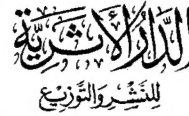 الدَّارُ الأَثَرِيَّة
لِلنَّشْرِ وَالتَّوْزِيعِ